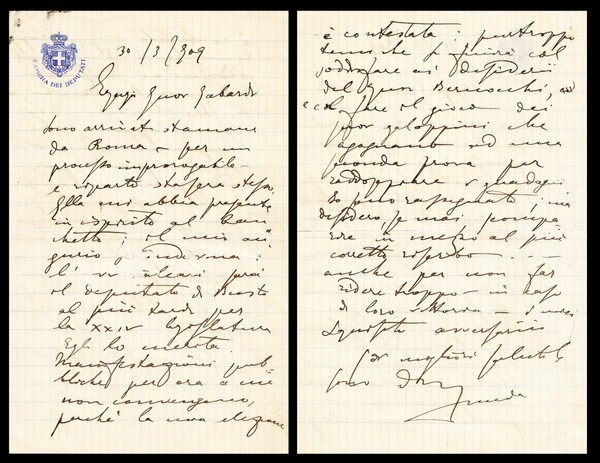 CAMERA DEI DEPUTATI
30/3/909
Egregio Signor Gabardi
Sono arrivato stamane
da Roma per un
processo improrogabile
e riparto stasera stessa.
Ella mi abbia presente
in ispirito al ban
chetto; il mio au
gurio,
l'avv. sarà
il deputato di Busto
al più tardi per
la XXIV legislatura
Egli lo merita.
Manifestazioni pub
bliche per ora a me
non convengono,
perchè la mia elezione
è contestata: purtroppo
temo che si finirà col
soddisfare ai desideri
del Signor
e col fare il gioco dei
signori galoppini che
agognano ad una
seconda prova per
raddoppiare i guadagni
Io sono rassegnato; ma
desidero se mai scompa
rire in mezzo al più
corretto riserbo
anche per non far
ridere troppo in caso
di loro vittoria i miei
squisiti avversari
Coi migliori saluti
suo